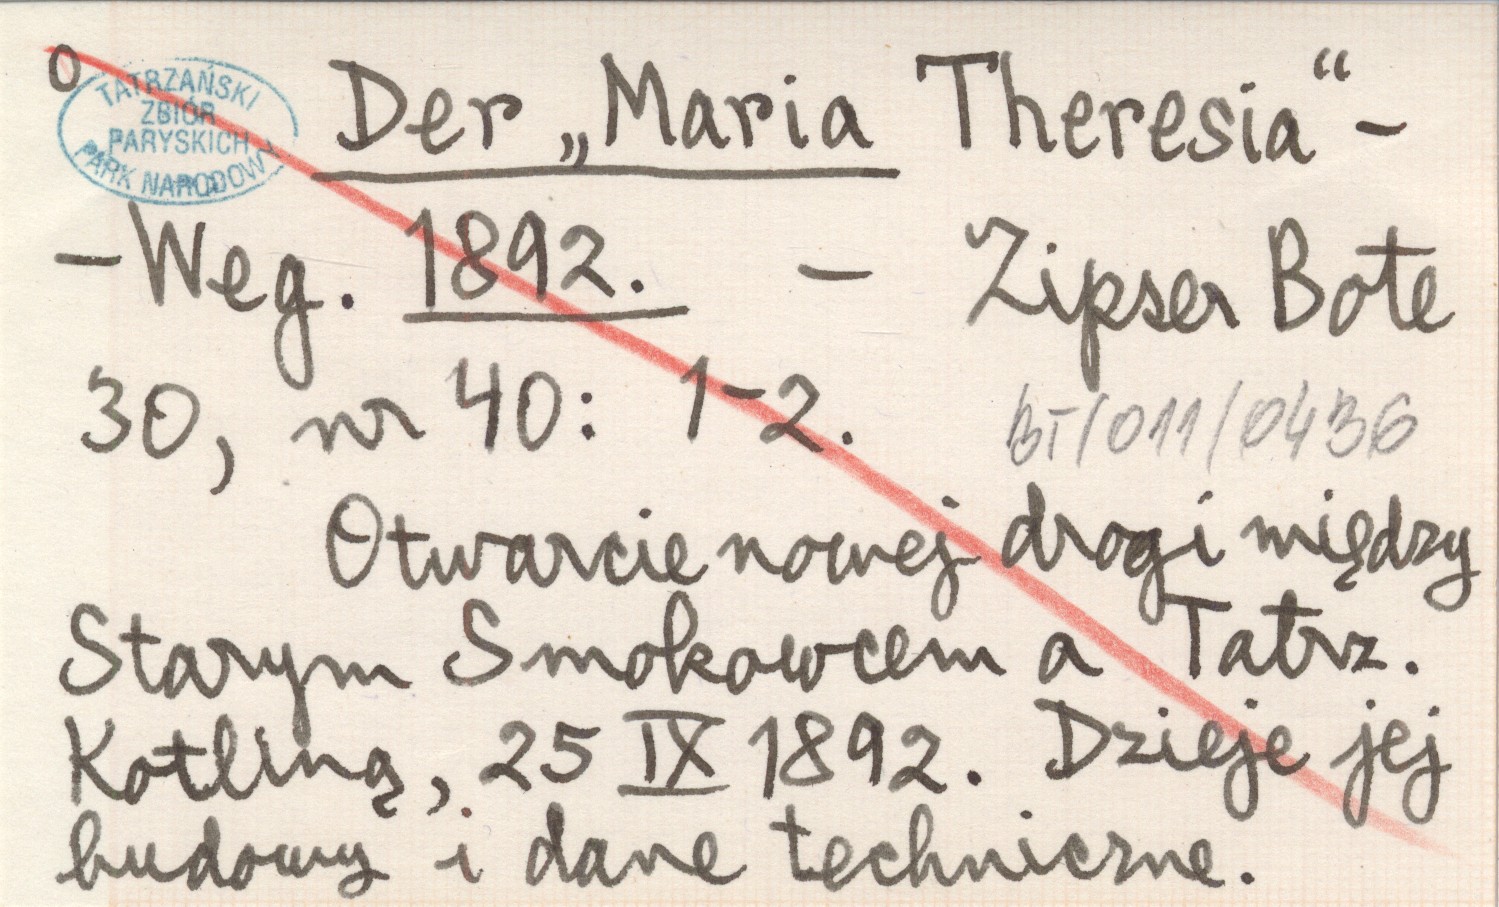 0
TATRZAŃSKI
ZBIÓR
PARYSKICH
PARK NARODOWY
Der „Maria Theresia“-
-Weg. 1892. - Zipser Bote
30, nr 40: 1-2.
BT/011/0436
Otwarcie nowej drogi między
Starym Smokowcem a Tatrz.
Kotliną, 25 IX 1892. Dzieje jej
budowy i dane techniczne.